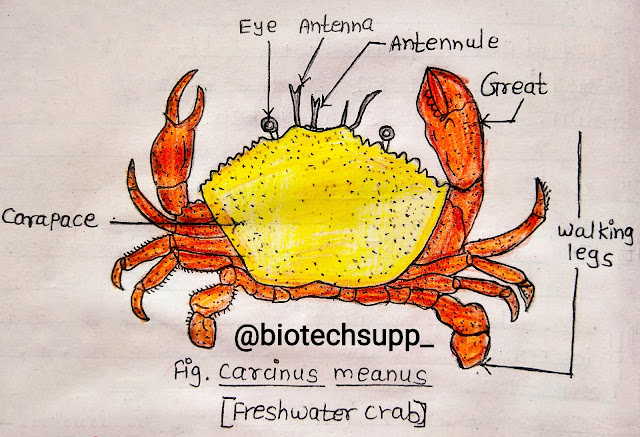 Eye
Antenna
Antennule
Great
Carapace
Walking legs
@biotechsupp_
Fig. Carcinus meanus
[Freshwater crab]